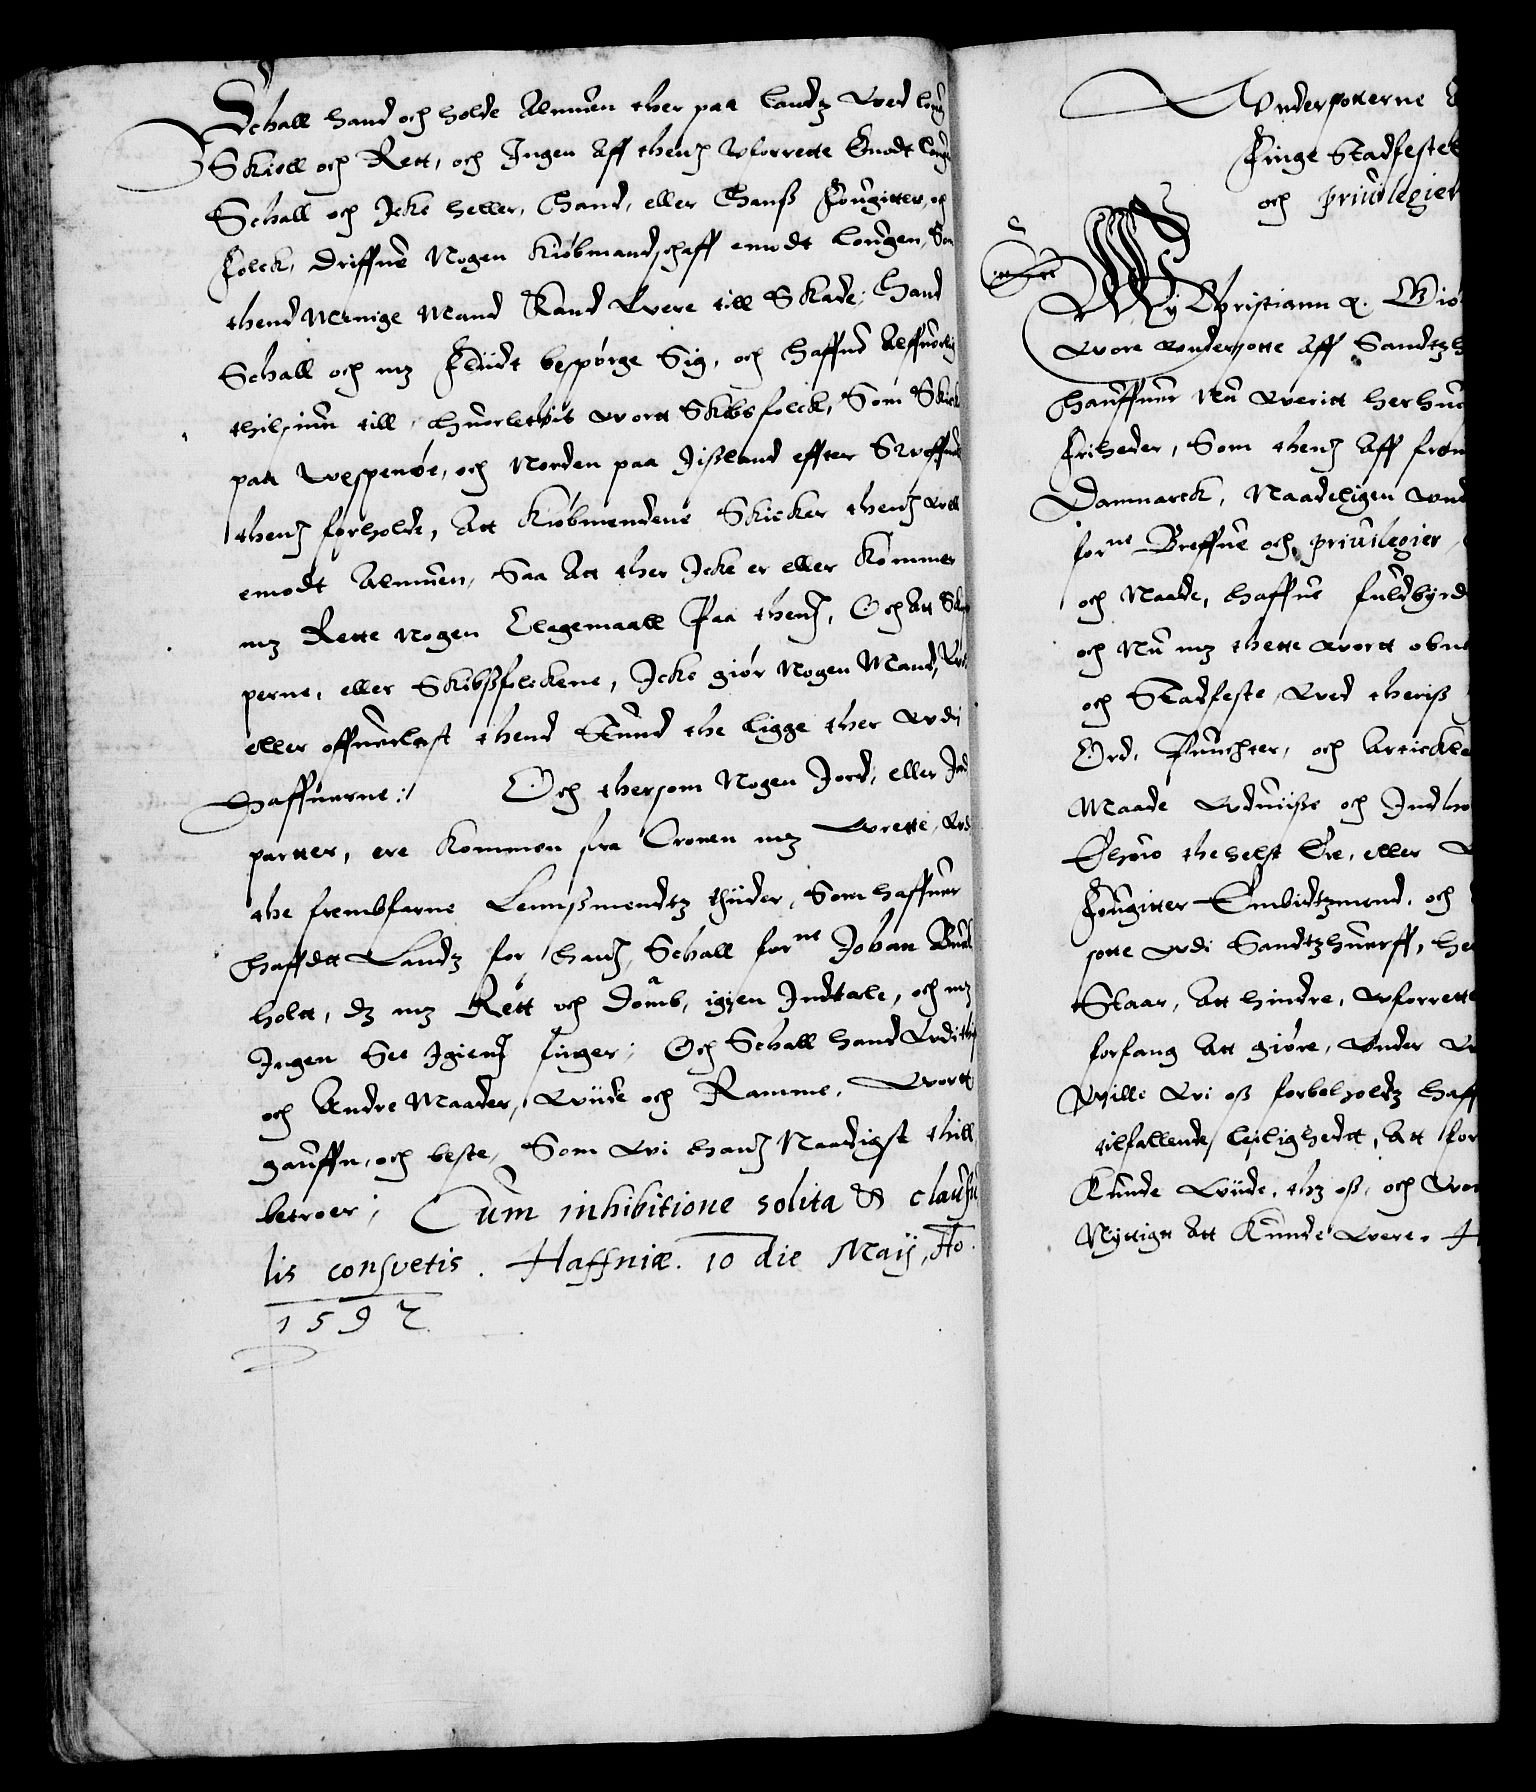 Schall hand och holde Almuen ther paa Landz Wed loug
Skiell och Rett, och Ingen Aff thenn Wforrette Emodt loug
Schall och Icke heller, Hand, eller Hans Fougitter, och
Folck, driffue Nogen Kiøbmandschaff emodt Lougen, Som
thend Menige Mand Kand Were till Skade; Hand
Schall och mz Fliidt bespørge Sig, och Haffue Alffuorlig
thilsiun till, huorledis wortt Skibsfolck, Som Skick
paa Wespenøe, och Norden paa Jisland effter
thenn forholde, Att Kiøbmendene Skicker thenn well
emodt Almuen, Saa Att ther Icke er eller Kommer
mz Rette Nogen Clagemaall Paa thenn, Och Att Skip
perne, eller Skibsfolckene, Icke giør Nogen Mand,
eller offuerlast thend Stund the ligge ther Wdi
Haffuerne: Och thersom Nogen Jord, eller Jord
partter, ere Kommen fra Cronen mz Wrette, Wdi
the frembfarne Lennsmendtz thiider, Som haffuer
haffdt Landz for hann, Schall forne Johan Buch
holt, dz mz Rett och Domb, igien Indtale, och mz
Ingen See Igienn finger; Och Schall hand Wdi th
och Andre Maader, Wiide och Ramme, Wortt
gauffn, och beste, Som Wi hann Naadigst thill
betroer; Cum inhibitione solita & clausu
lis consuetis. Haffniæ. 10 die Maij, Ao.
1592
Wndersotterne
Finge Stadfestet
och priuilegier
Wy Christiann &. Giø
Wore wndersotte Aff Sandtzh
hauffuer Nu Weritt her hu
Friheder, Som thenn Aff from
Dannarck, Naadeligen Und
forne Breffue och priuilegier,
och Naade, haffue fuldbyrd
och Nu mz thette wortt obne
och Stadfeste, Wed theris
Ord, Punchter, och Artickle
Maade Wduiise och Indho
Ehuo thehelst Ere, eller
Fougitter Embidtzmend, och
sotte Wdi Sandtzhuerff, he
Staar, Att hindre, Wforrette
forfang Att giøre, Under
Wille Wi oss forbeholdt haff
tilfallende leiligheedt, Att for
Kunde Wiide, thz oss, och Wor
Nyttigt Att Kunde Were.